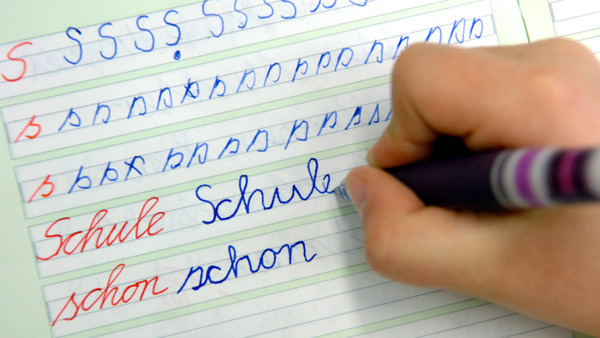 S S S S S S S S S S S
s s s s s s s s s s s s s s s s s
s s s s s s s s s s s s
Schule Schule
schon schon